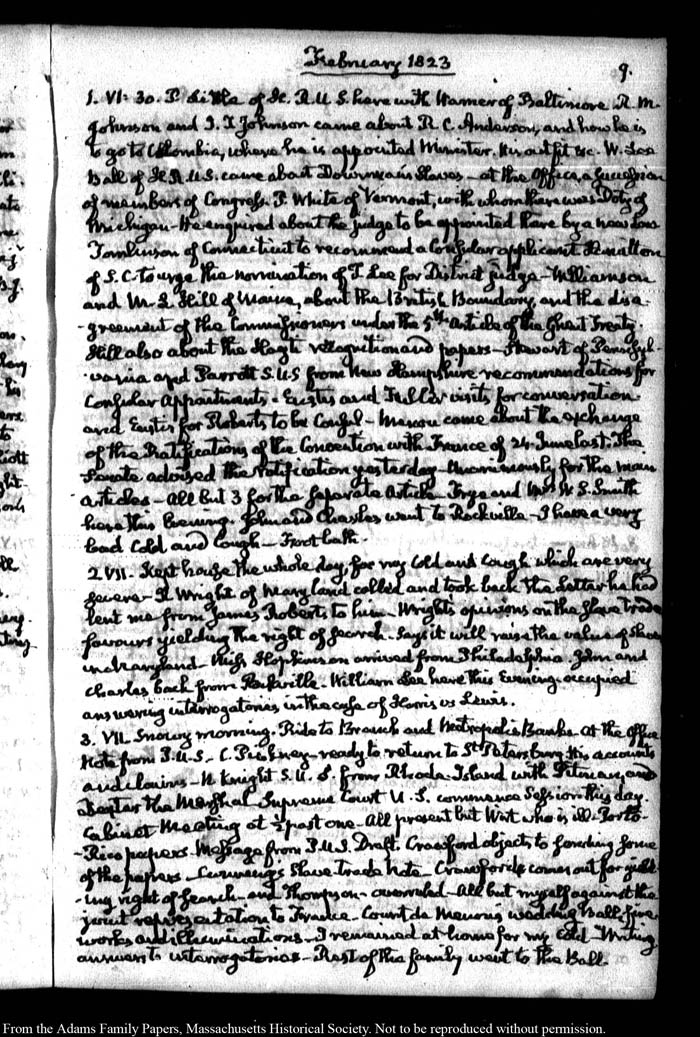 February 1823
9.
1. VI: 30. P. Little of H. R. U S. here with Warner of Baltimore R. M.
Johnson and J. T Johnson came about R. C. Anderson, and how he is
to go to Colombia, where he is appointed Minister. His outfit &c. W. Lee
Ball of H. R. U.S. came about Slaves — at the Office, a succession
of members of Congress. P. White of Vermont, with whom there was Doty of
Michigan — He enquired about the judge to be appointed there by a new Law
Tomlinson of Connecticut to recommend a Consular applicant
of S. C. to urge the nomination of T. Lee for District judge — Williamson
and M. L. Hill of Maine, about the British Boundary, and the disa-
-greement of the Commissioners under the 5th Article of the Ghent Treaty.
Hill also about the Hayti recognition and papers — Stewart of Pennsyl-
-vania and Parrott S. U S from New Hampshire recommendations for
Consular Appointments — Eustis and Fuller visits for conversation
and Eustis for Roberts to be Consul — Menou came about the exchange
of the Ratifications of the Convention with France of 24. June last. The
Senate advised the ratification yesterday — Unanimously for the main
articles — All but 3 for the separate Article. Frye and Mrs W. S. Smith
here this Evening. John and Charles went to Rockville — I have a very
bad Cold and Cough — Foot bath.
2. VII. Kept house the whole day, for my Cold and Cough which are very
severe — R. Wright of Maryland called and took back the Letter he had
lent me from James Roberts to him — Wright's opinions on the Slave trade
favours yielding the right of search — Says it will raise the value of Slaves
in Maryland — Miss Hopkinson arrived from Philadelphia. John and
Charles back from Rockville. William Lee here this Evening. occupied
answering interrogatories in the case of Harris vs Lewis.
3. VII. Snowy morning. Ride to Branch and Metropolis Banks — At the Office
Note from P. U. S — C. Pinkney — ready to return to St Petersburg. His accounts
and claims — N. Knight S. U. S. from Rhode-Island with and
the Marshal. Supreme Court U. S. commence Session this day.
Cabinet Meeting at ½ past one — All present but Wirt who is ill. Porto-
-Rico papers. Message from P. U. S. Draft. Crawford objects to sending some
of the papers — Canning's Slave trade Note — Crawford comes out for yield-
-ing right of Search — and Thompson — overruled — All but myself against the
joint representation to France — Count de Menou's wedding ball, fire
works and illuminations — I remained at home for my Cold — Writing
answers to interrogatories — Rest of the family went to the Ball.
From the Adams Family Papers, Massachusetts Historical Society. Not to be reproduced without permission.